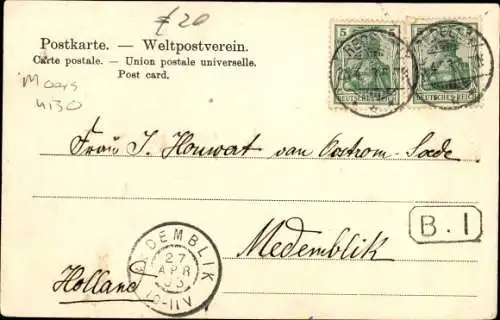 £ 20
Postkarte. — Weltpostverein.
Carte postale. — Union postale universelle.
Post card.
5 5
DEUTSCHES REICH
DEUTSCHES REICH
Frau J. Houwat van Oostrom-Soede
B. I
Medemblik
Holland
DEMBLIK
27
APR